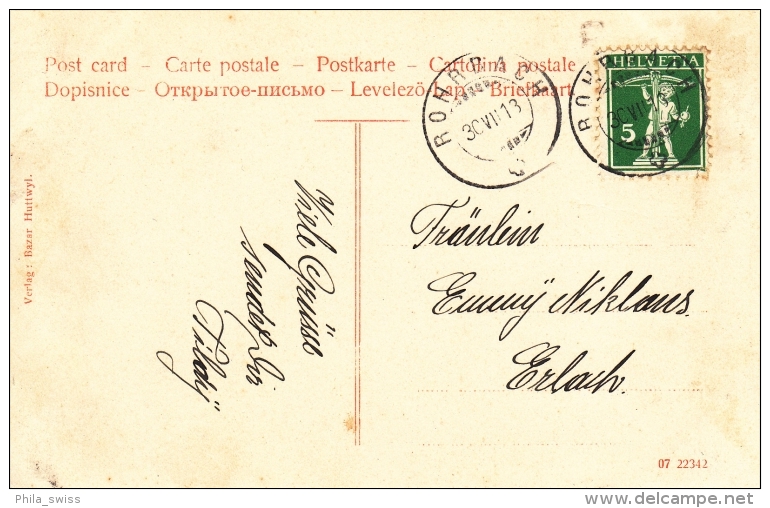 Post card – Carte postale – Postkarte – Cartolina postale
Dopisnice – Открытое-письмо – Levelező-Lap – Briefkaart
ROHRBACH
30 VII 13
ROHRBACH
30 VII 13
HELVETIA
5
Verlag : Bazar Huttwyl.
Viele Grüsse
sendet Dir
Tildÿ
Fräulein
Emmÿ Niklaus.
Erlach.
07 22342
Phila_swiss
delcampe.net